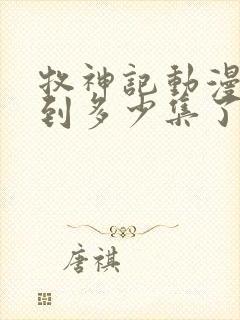 牧神記動漫
到多少集了
唐祺